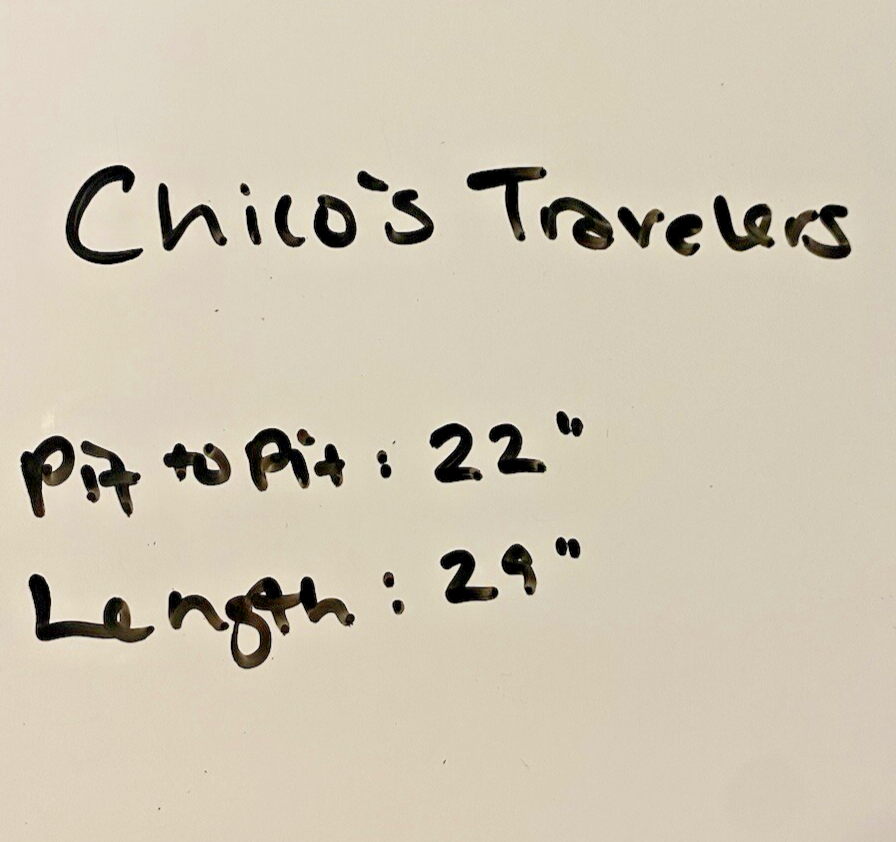 Chico's Travelers
Pit to Pit: 22"
Length: 29"